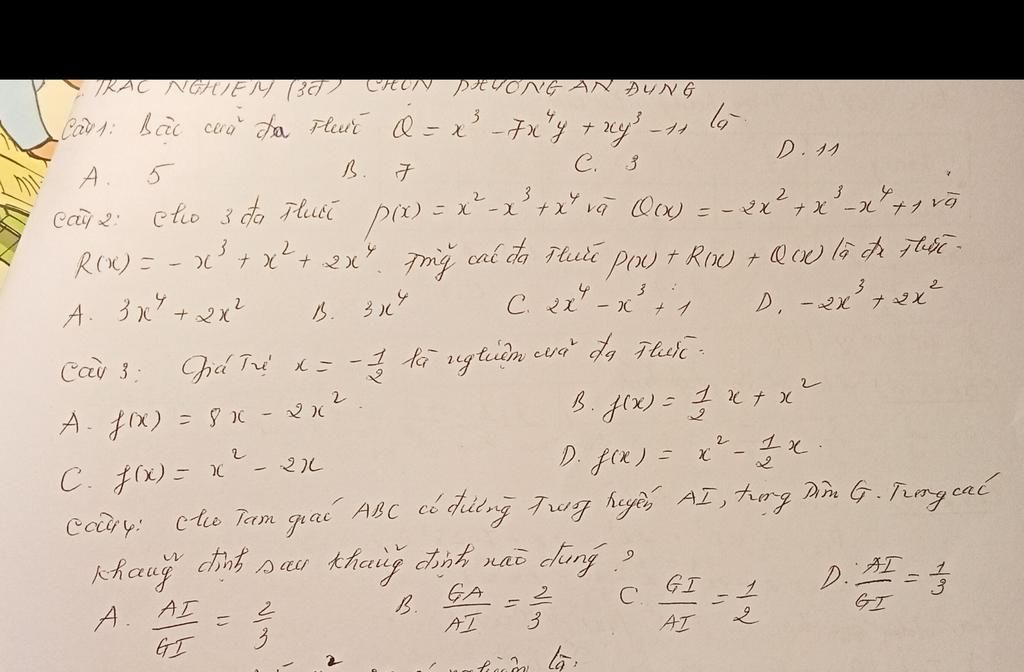 TRẮC NGHIỆM (3đ) CHỌN PHƯƠNG ÁN ĐÚNG
Câu 1: Bậc của đa thức Q = x³ - 7x⁴y + xy³ - 11 là
A. 5 B. 7 C. 3 D. 11
Câu 2: Cho 3 đa thức P(x) = x² - x³ + x⁴ và Q(x) = -2x² + x³ - x⁴ + 1 và
R(x) = -x³ + x² + 2x⁴. Tổng các đa thức P(x) + R(x) + Q(x) là đa thức.
A. 3x⁴ + 2x² B. 3x⁴ C. 2x⁴ - x³ + 1 D. -2x³ + 2x²
Câu 3: Giá trị x = -1/2 là nghiệm của đa thức.
A. f(x) = 8x - 2x². B. f(x) = 1/2 x + x²
C. f(x) = x² - 2x D. f(x) = x² - 1/2 x.
Câu 4: Cho tam giác ABC có đường trung tuyến AI, trọng tâm G. Trong các
khẳng định sau khẳng định nào đúng?
A. AI/GI = 2/3 B. GA/AI = 2/3 C. GI/AI = 1/2 D. AI/GI = 1/3
nghiệm là: